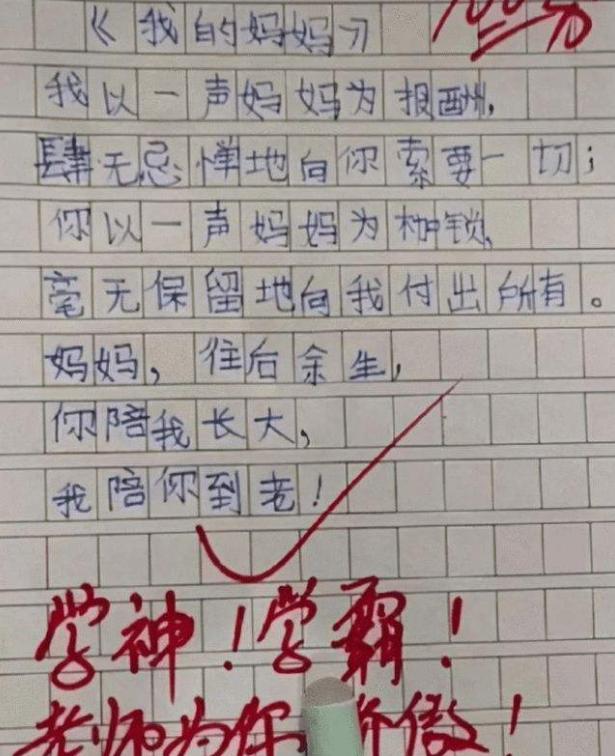 《我的妈妈》 100分
我以一声妈妈为报酬,
肆无忌惮地向你索要一切;
你以一声妈妈为枷锁,
毫无保留地向我付出所有。
妈妈,往后余生,
你陪我长大,
我陪你到老!
学神!学霸!
老师为你 傲!